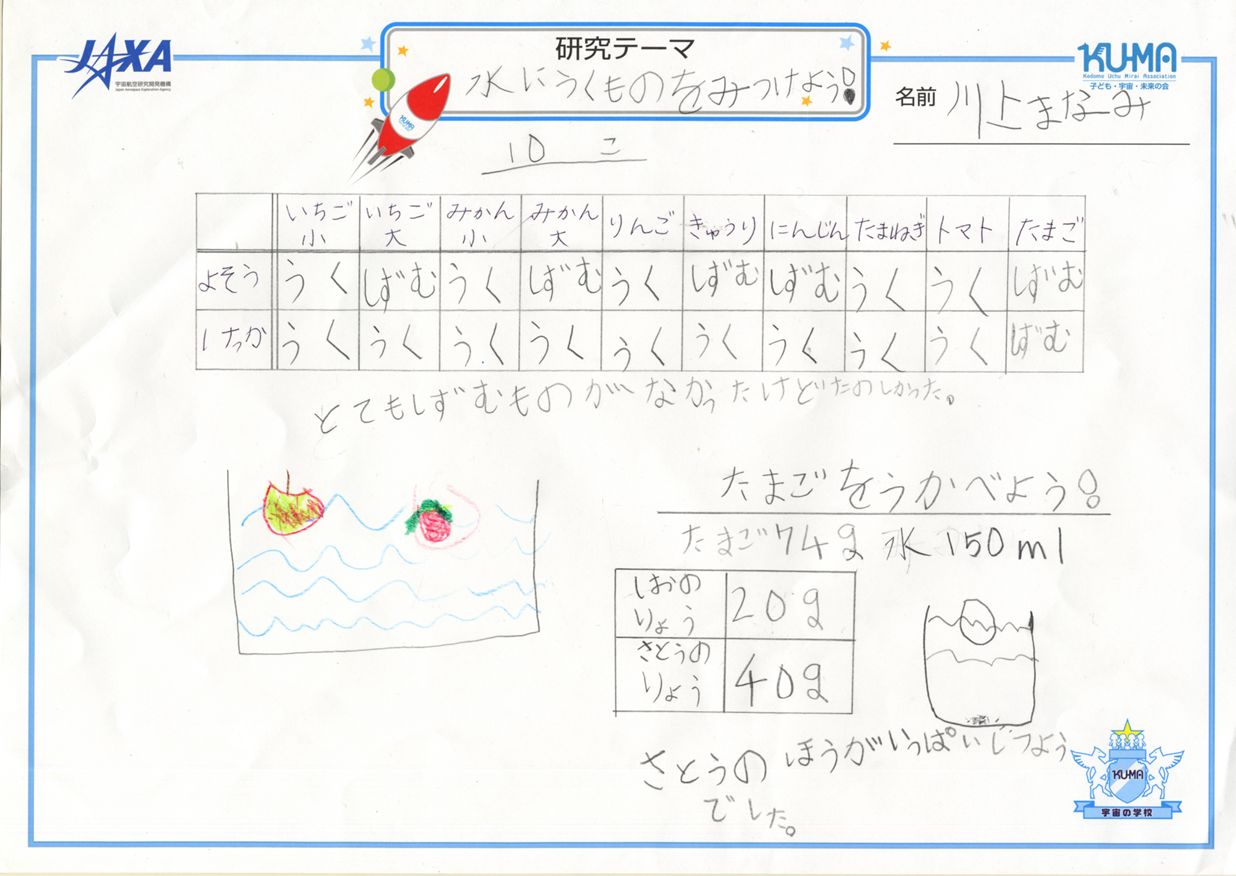 JAXA
宇宙航空研究開発機構
Japan Aerospace Exploration Agency
研究テーマ
水にうくものをみつけよう!
KUMA
KU-MA
Kodomo Uchu Mirai Association
子ども・宇宙・未来の会
名前 川上まなみ
10 こ
いちご小 いちご大 みかん小 みかん大 りんご きゅうり にんじん たまねぎ トマト たまご
よそう うく しずむ うく しずむ うく しずむ しずむ うく うく しずむ
けっか うく うく うく うく うく うく うく うく うく しずむ
とてもしずむものがなかったけどたのしかった。
たまごをうかべよう!
たまご74g 水150ml
しおのりょう 20g
さとうのりょう 40g
さとうのほうがいっぱいひつよう
でした。
KU-MA
宇宙の学校